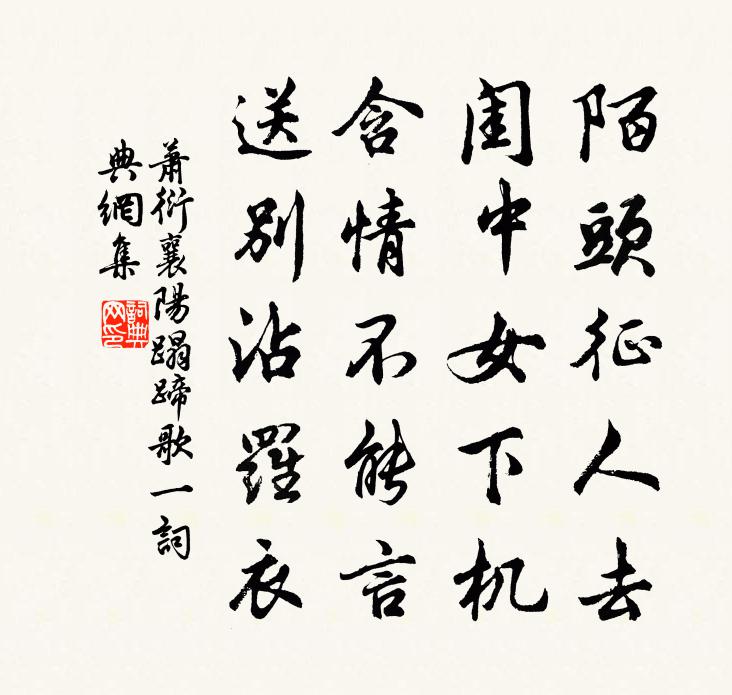 陌頭征人去
闺中女下机
含情不能言
送别沾羅衣
蕭衍襄陽蹋蹄歌一詞
典網集
詞典
网印